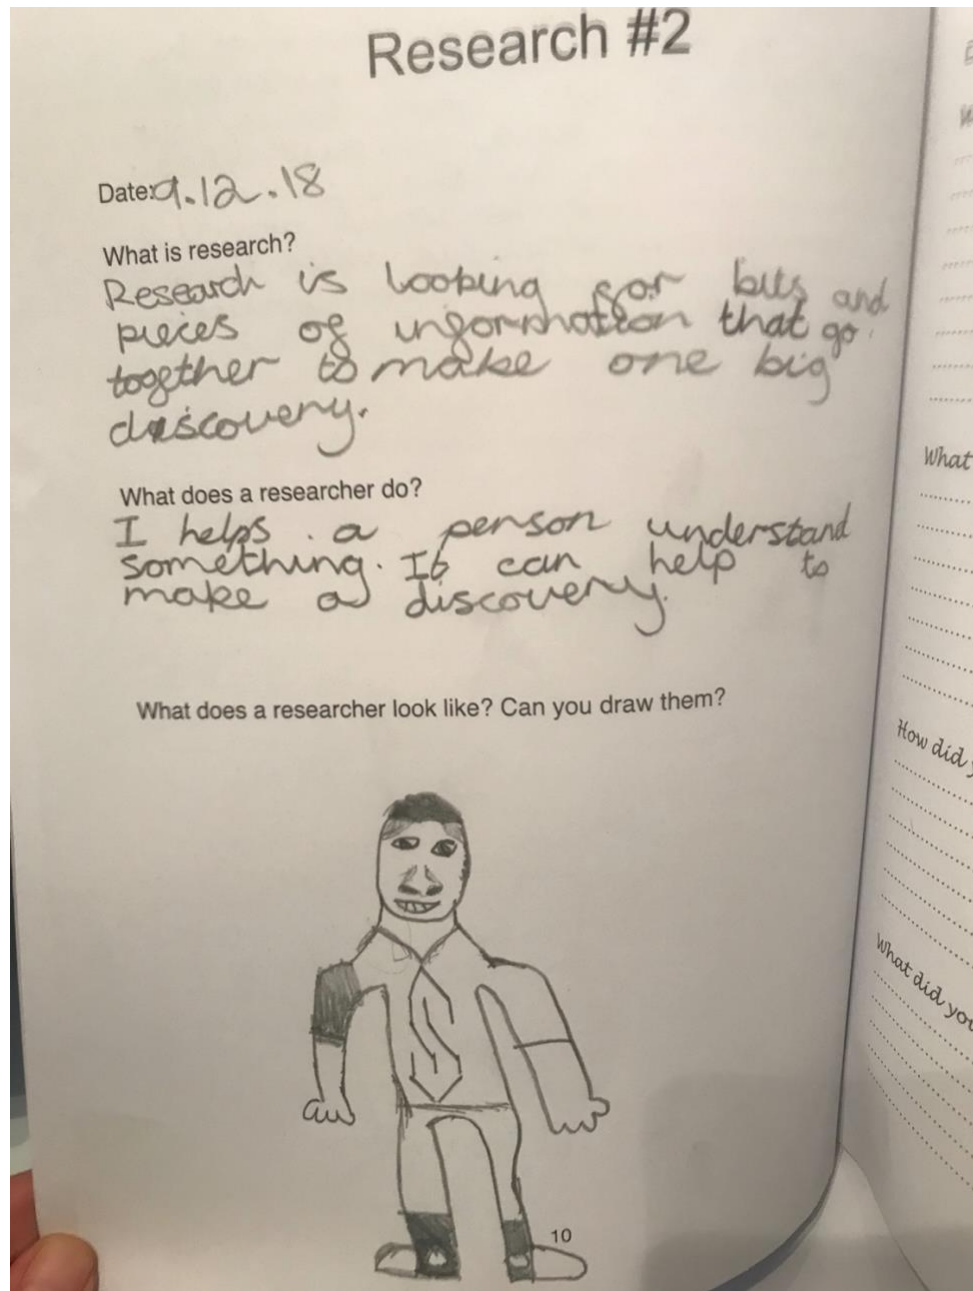 Research #2
Date: 9.12.18
What is research?
Research is looking for bits and
pieces of information that go
together to make one big
discovery.
What does a researcher do?
I helps a person understand
something. It can help to
make a discovery.
What does a researcher look like? Can you draw them?
S
10
What
How did
What did you